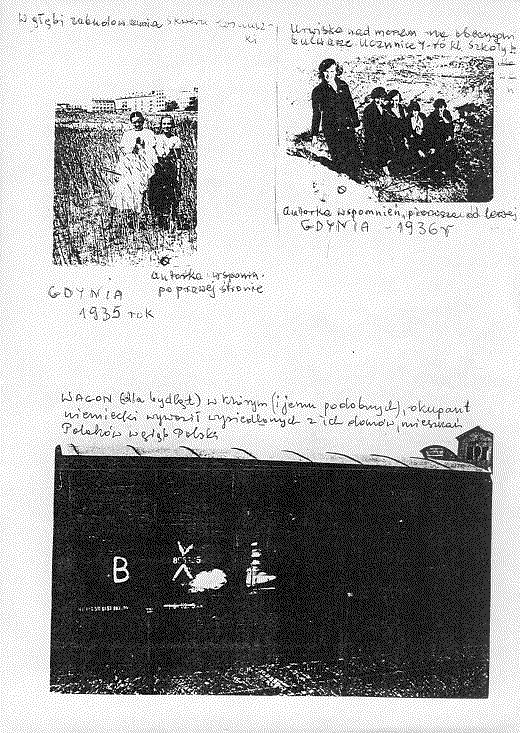 W głębi zabudowania skweru
Urwisko nad morzem na obecnym
bulwarze Uczennice 7-ro kl. Szkoły
autorka wspomnień, pierwsza od lewej
GDYNIA - 1936r
autorka wspomn.
po prawej stronie
GDYNIA
1935 rok
WAGON (dla bydląt) w którym (i jemu podobnych), okupant
niemiecki wywoził wysiedlonych z ich domów, mieszkań
Polaków w głąb Polski
B